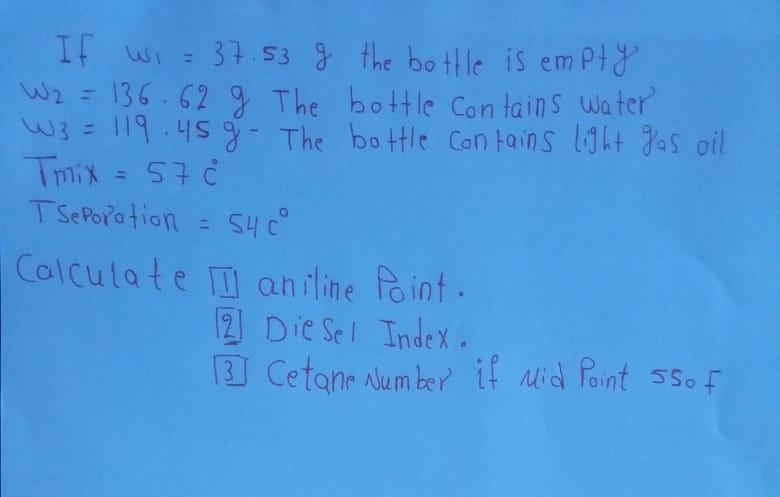 If W1 = 37.53 g the bottle is empty
W2 = 136.62 g The bottle contains water
W3 = 119.45 g - The bottle contains light gas oil
Tmix = 57 c°
TSeporation = 54 c°
Calculate [1] aniline Point.
[2] Diesel Index.
[3] Cetane Number if Mid Point 550 F